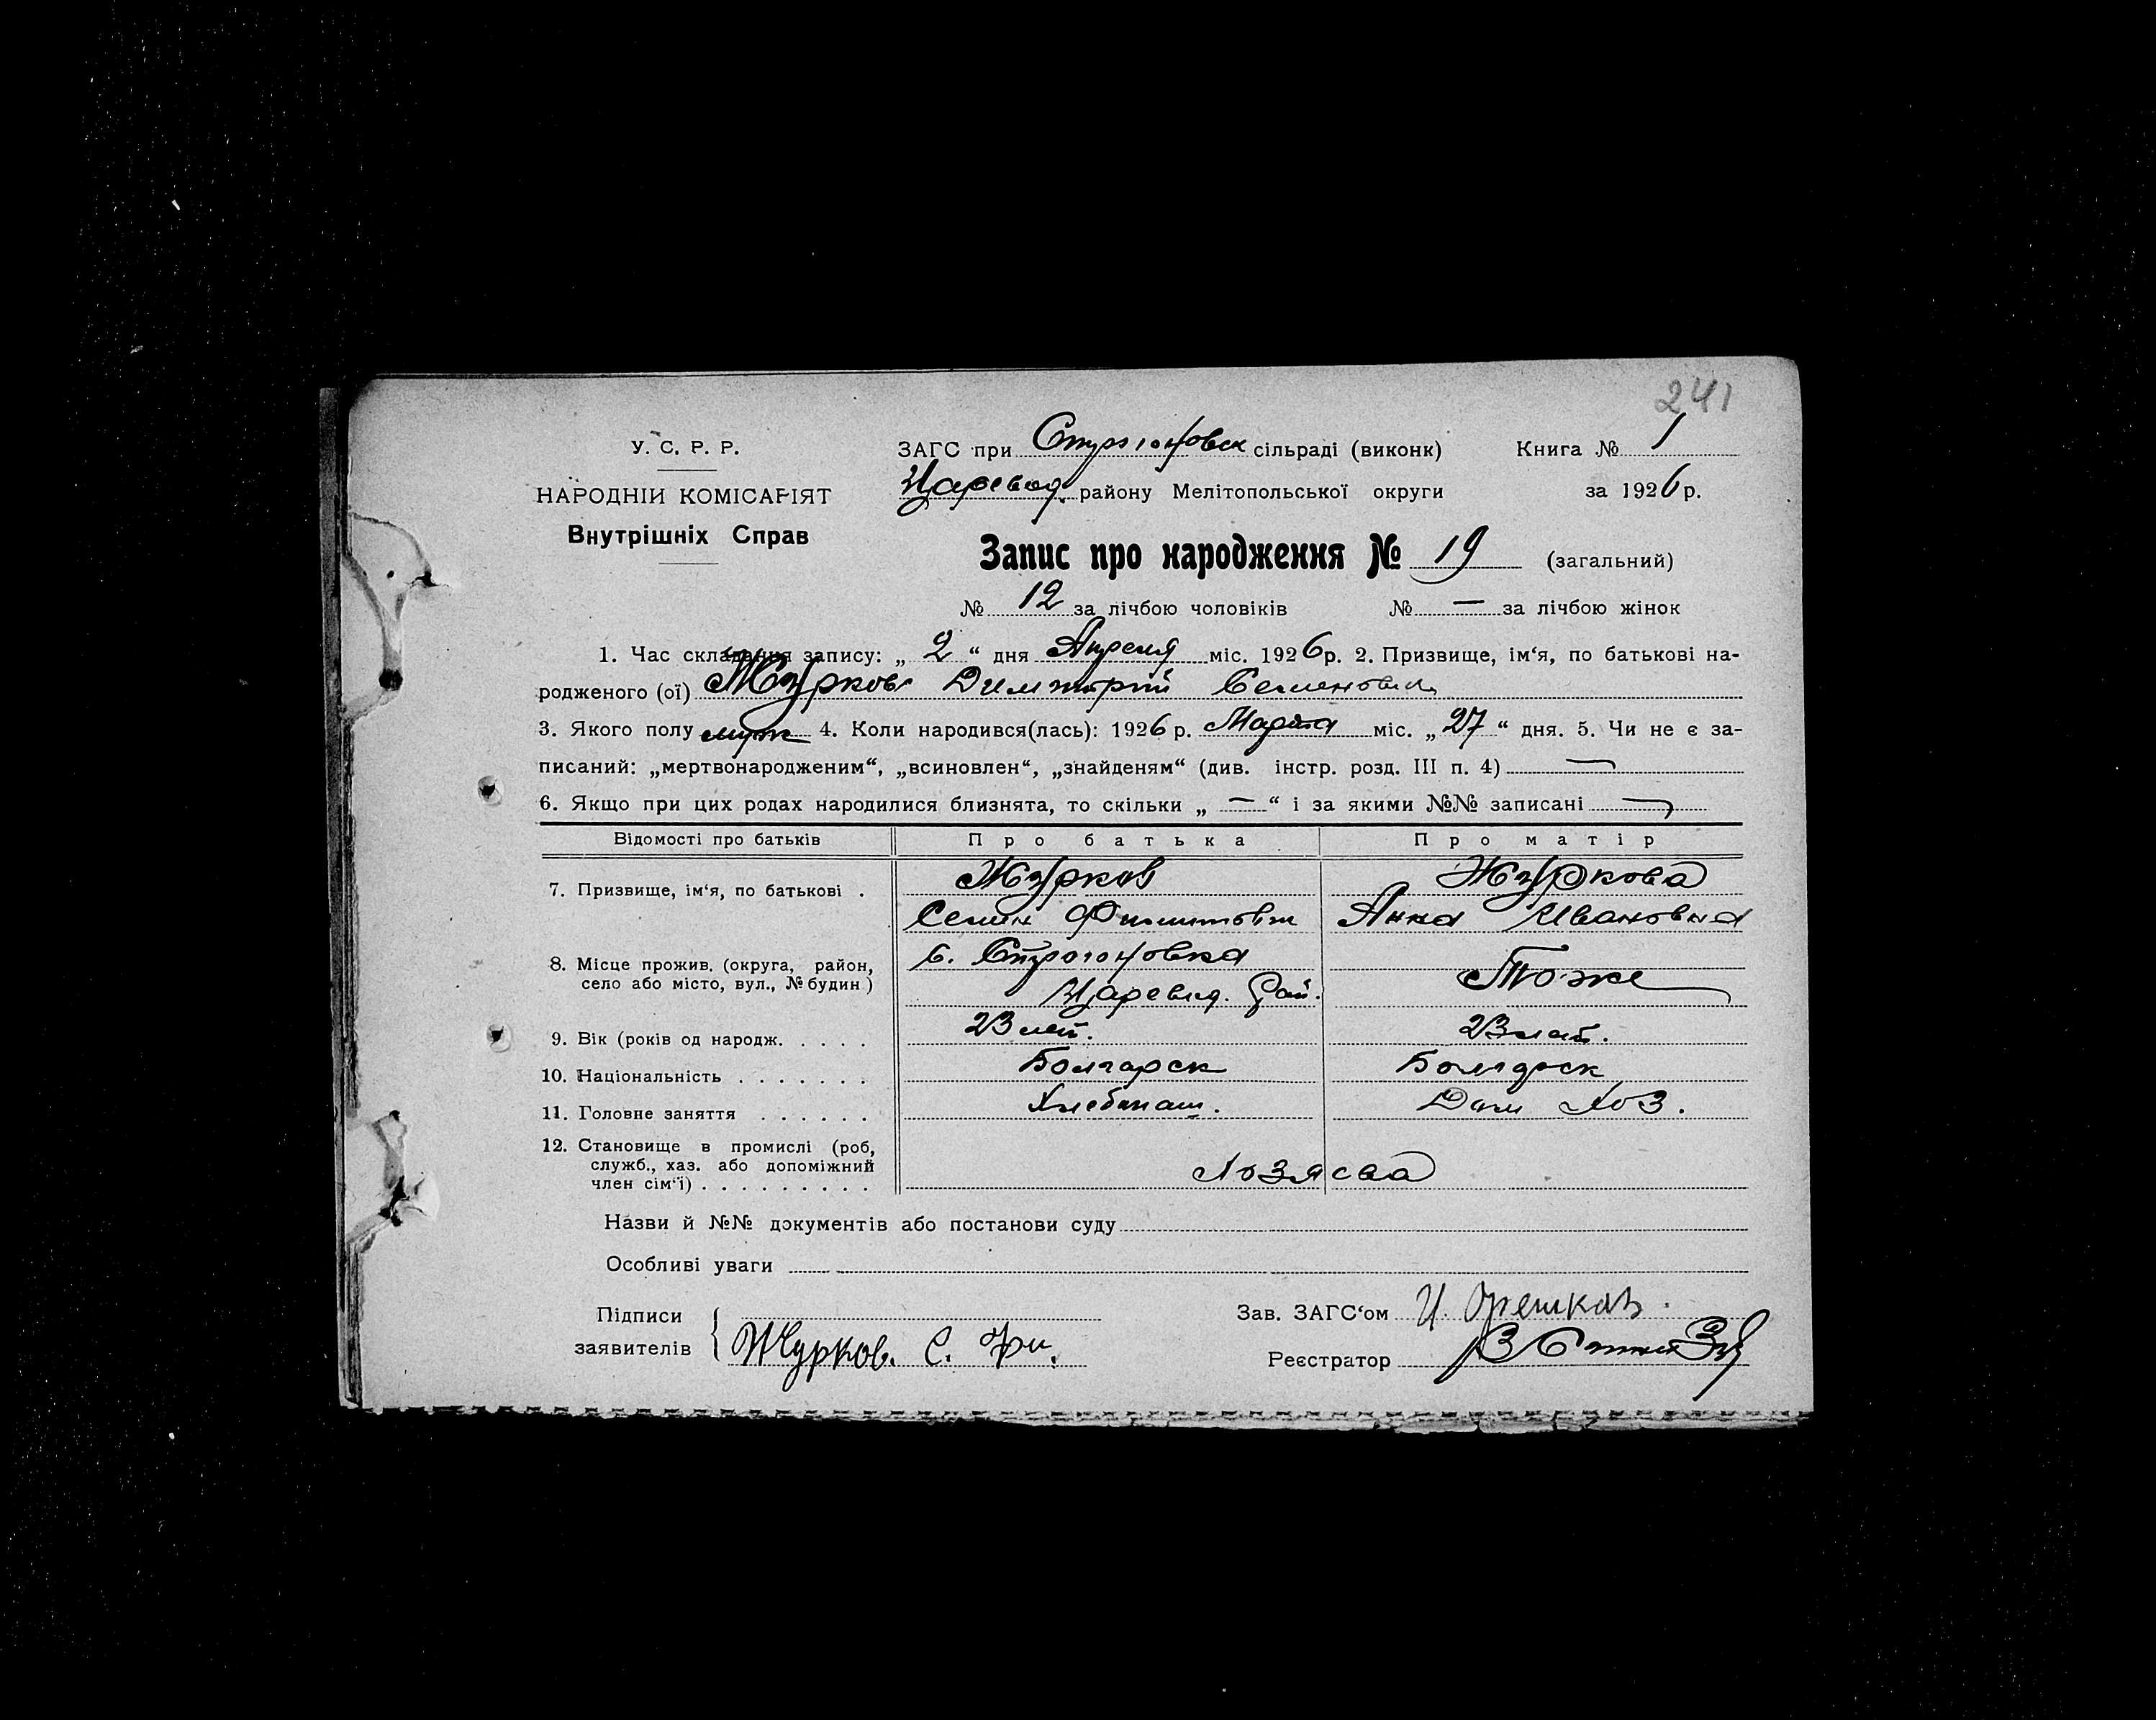 241
У. С. Р. Р.
НАРОДНІЙ КОМІСАРІЯТ
Внутрішніх Справ
ЗАГС при Строгоновск сільраді (виконк) Книга № 1
Царевод. району Мелітопольської округи за 1926 р.
Запис про народження № 19 (загальний)
№ 12 за лічбою чоловіків № — за лічбою жінок
1. Час складання запису: „ 2 “ дня Апреля міс. 1926 р. 2. Призвище, ім‘я, по батькові на-
родженого (ої) Журков Димитрий Семенович
3. Якого полу муж 4. Коли народився(лась): 1926 р. Марта міс. „ 27 “ дня. 5. Чи не є за-
писаний: „мертвонародженим“, „всиновлен“, „знайденям“ (див. інстр. розд. III п. 4) —
6. Якщо при цих родах народилися близнята, то скільки „ — “ і за якими №№ записані —
Відомості про батьків Про батька Про матір
7. Призвище, ім‘я, по батькові . Журков Журкова
Семен Филипович Анна Ивановна
8. Місце прожив. (округа, район, село або місто, вул., № будин) с. Строгоновка Тоже
Царевод. Рай.
9. Вік (років од народж. . . . . 23 лет. 23 лет.
10. Національність . . . . . . . Болгарск Болгарск
11. Головне заняття . . . . . . Хлебопаш. Дом Хоз.
12. Становище в промислі (роб,
служб., хаз. або допоміжний
член сім‘ї) . . . . . . . . . Хозяева
Назви й №№ документів або постанови суду
Особливі уваги
Підписи
заявителів { Журков. С. Фи.
Зав. ЗАГС‘ом И. Орешков
Реєстратор